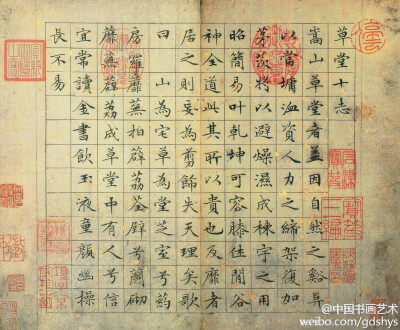 草堂十志
嵩山草堂者蓋因自然之谿阜
以當墉洫資人力之縮架復加
茅茨將以避燥濕成棟宇之用
昭簡易叶乾坤可容膝休閒谷
神全道此其所以貴也及靡者
居之則妄為剪飾失天理矣歌
曰山為宅兮草為堂芝室兮葯
房羅蘼蕪拍薜荔荃壁兮蘭砌
蘼蕪薜荔成草堂中有人兮信
宜常讀金書飲玉液童顏幽操
長不易
@中国书画艺术
weibo.com/gdshys